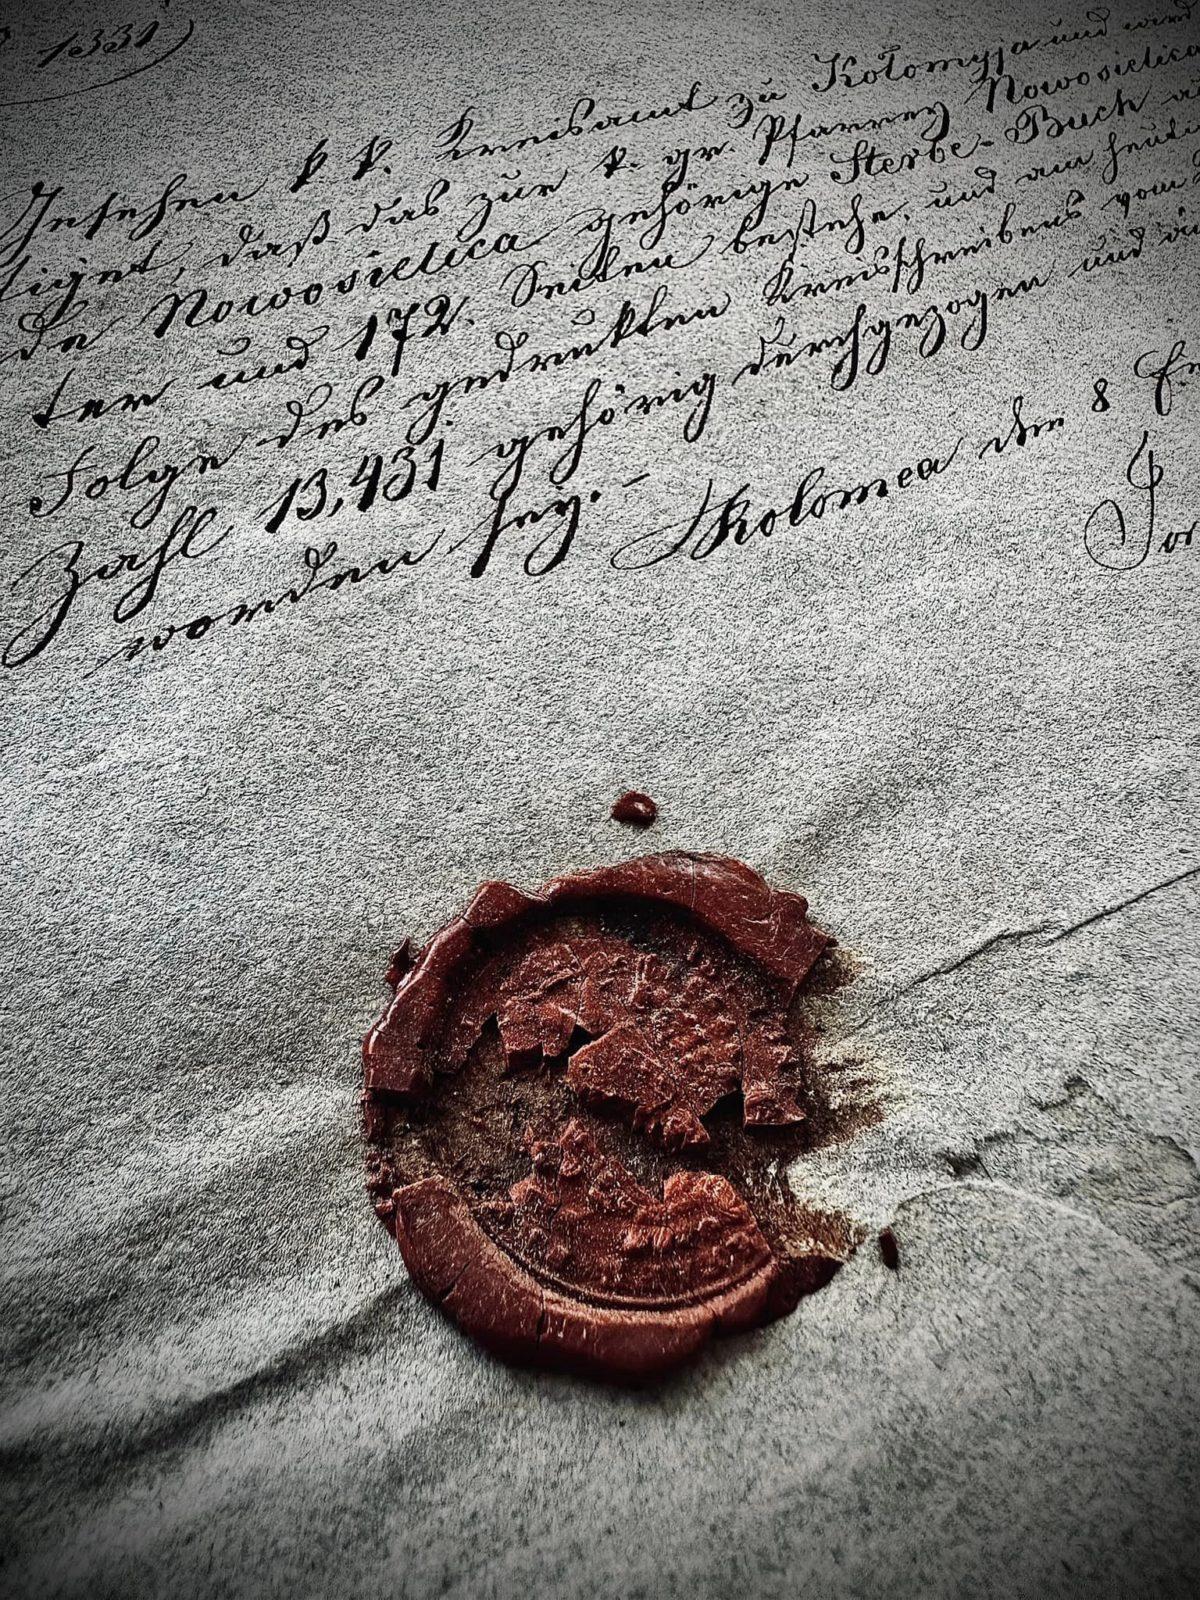 1331
k. k. Kreisamt zu Kołomyja und wird
tiget, daß das zur r. gr. Pfarrey Nowosielica
de Nowosielica gehörige Sterbe-Buch
ter und 172. Seiten bestehe, und am heuti
Folge des gedrukten Kreisschreibens vom
Zahl 13,431 gehörig durchgezogen und
worden sey. – Kolomea den 8